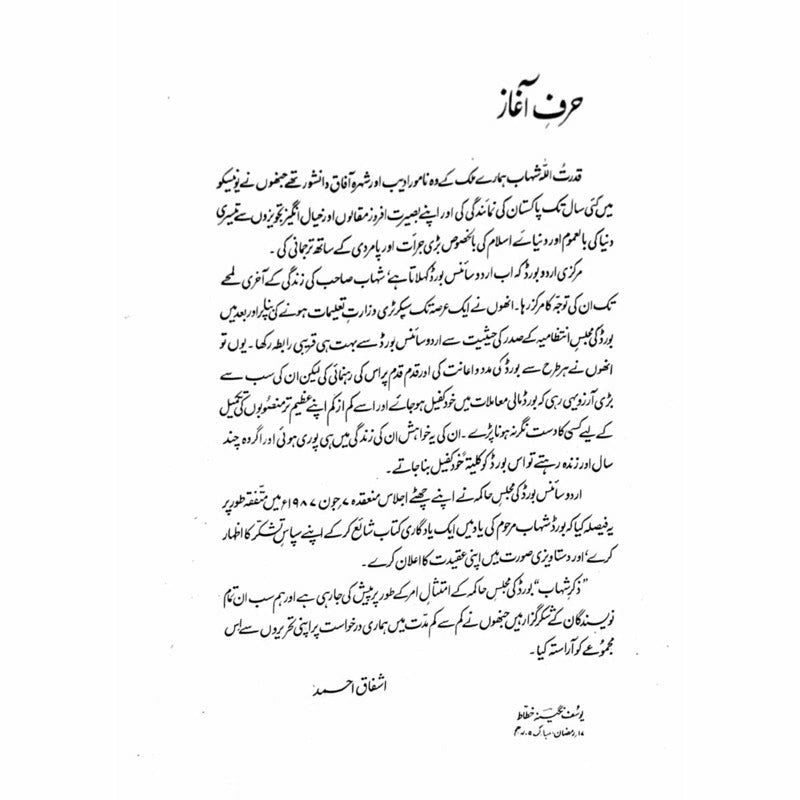 حرفِ آغاز
قدرتُ اللہ شہاب ہمارے ملک کے وہ نامور ادیب اور شہرہ آفاق دانشور تھے جنھوں نے یونیسکو
میں کئی سال تک پاکستان کی نمائندگی کی اور اپنے بصیرت افروز مقالوں اور خیال انگیز تجویزوں سے تیسری
دنیا کی بالعموم اور دنیائے اسلام کی بالخصوص بڑی جرأت اور پامردی کے ساتھ ترجمانی کی ۔
مرکزی اردو بورڈ کہ اب اردو سائنس بورڈ کہلاتا ہے، شہاب صاحب کی زندگی کے آخری لمحے
تک ان کی توجّہ کا مرکز رہا ۔ انھوں نے ایک عرصہ تک سیکرٹری وزارتِ تعلیمات ہونے کی بنا پر اور بعد میں
بورڈ کی مجلسِ انتظامیہ کے صدر کی حیثیت سے اردو سائنس بورڈ سے بہت ہی قریبی رابطہ رکھا ۔ یوں تو
انھوں نے ہر طرح سے بورڈ کی مدد و اعانت کی اور قدم قدم پر اس کی رہنمائی کی لیکن ان کی سب سے
بڑی آرزو یہی رہی کہ بورڈ مالی معاملات میں خود کفیل ہو جائے اور اسے کم از کم اپنے عظیم تر منصوبوں کی تکمیل
کے لیے کسی کا دست نگر نہ ہونا پڑے ۔ ان کی یہ خواہش ان کی زندگی میں ہی پوری ہوئی اور اگر وہ چند
سال اور زندہ رہتے تو اس بورڈ کو کلیتہً خود کفیل بنا جاتے ۔
اردو سائنس بورڈ کی مجلسِ حاکمہ نے اپنے چھٹے اجلاس منعقدہ ۷؍جون ۱۹۸۷ء میں متّفقہ طور پر
یہ فیصلہ کیا کہ بورڈ شہاب مرحوم کی یاد میں ایک یادگاری کتاب شائع کر کے اپنے سپاسِ تشکّر کا اظہار
کرے، اور دستاویزی صورت میں اپنی عقیدت کا اعلان کرے ۔
”ذکرِ شہاب“ بورڈ کی مجلسِ حاکمہ کے امتثالِ امر کے طور پر پیش کی جا رہی ہے اور ہم سب ان تمام
نویسندگان کے شکر گزار ہیں جنھوں نے کم سے کم مدّت میں ہماری درخواست پر اپنی تحریروں سے اس
مجموعے کو آراستہ کیا ۔
اشفاق احمد
یوسف نگینہ خطاط
۱۷؍رمضان المبارک